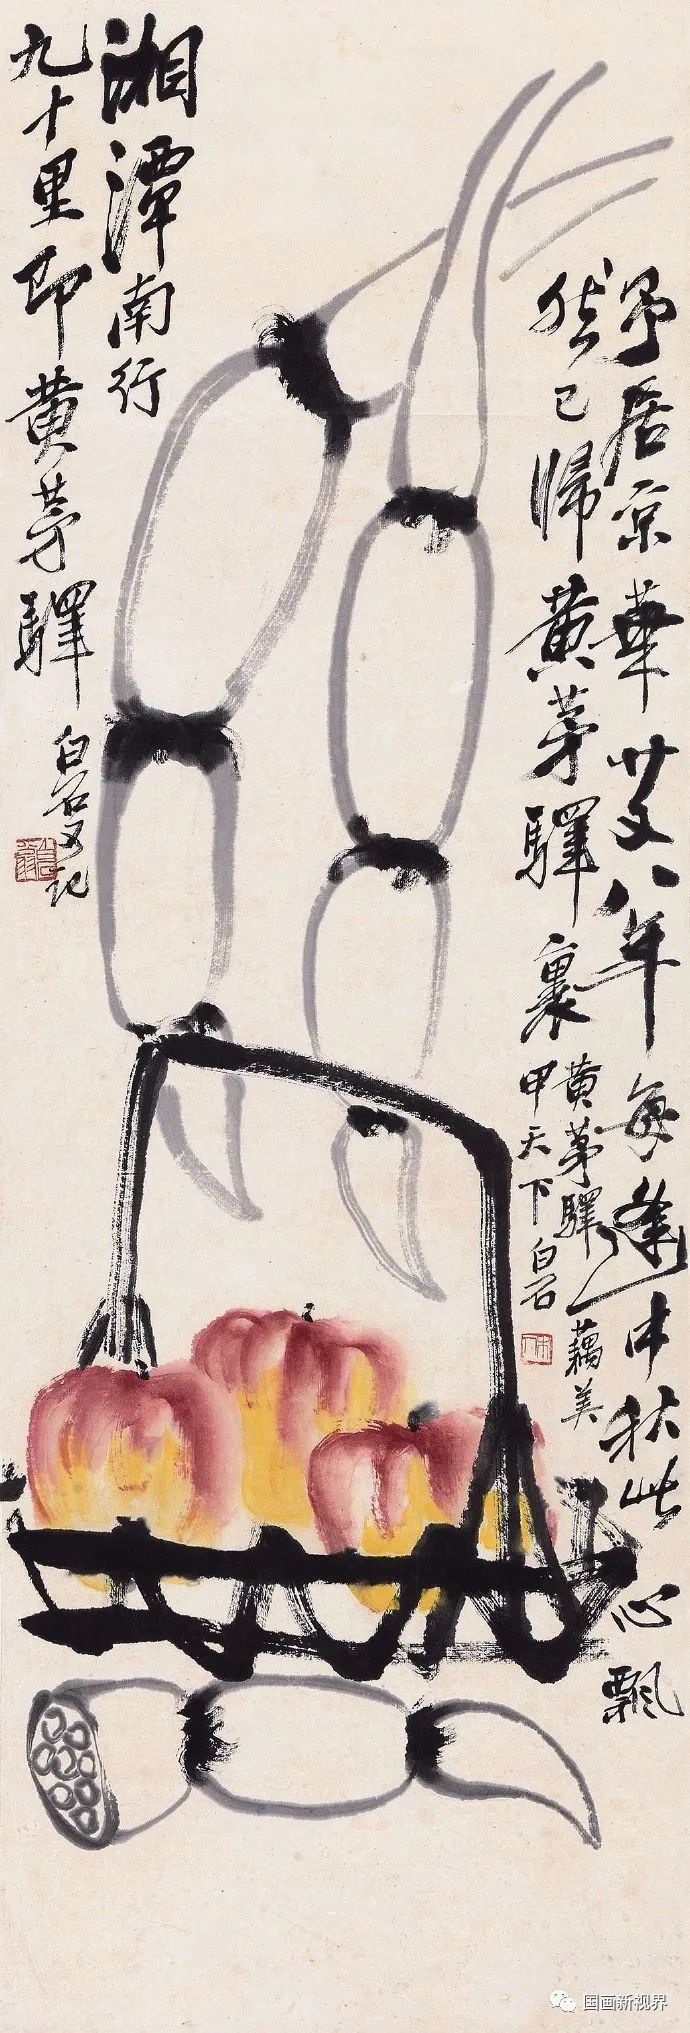 予居京華廿又八年每逢中秋此心飄
然已歸黄茅驛裏
黄茅驛藕美
甲天下白石
湘潭南行
九十里即黄茅驛
白石又記
国画新视界